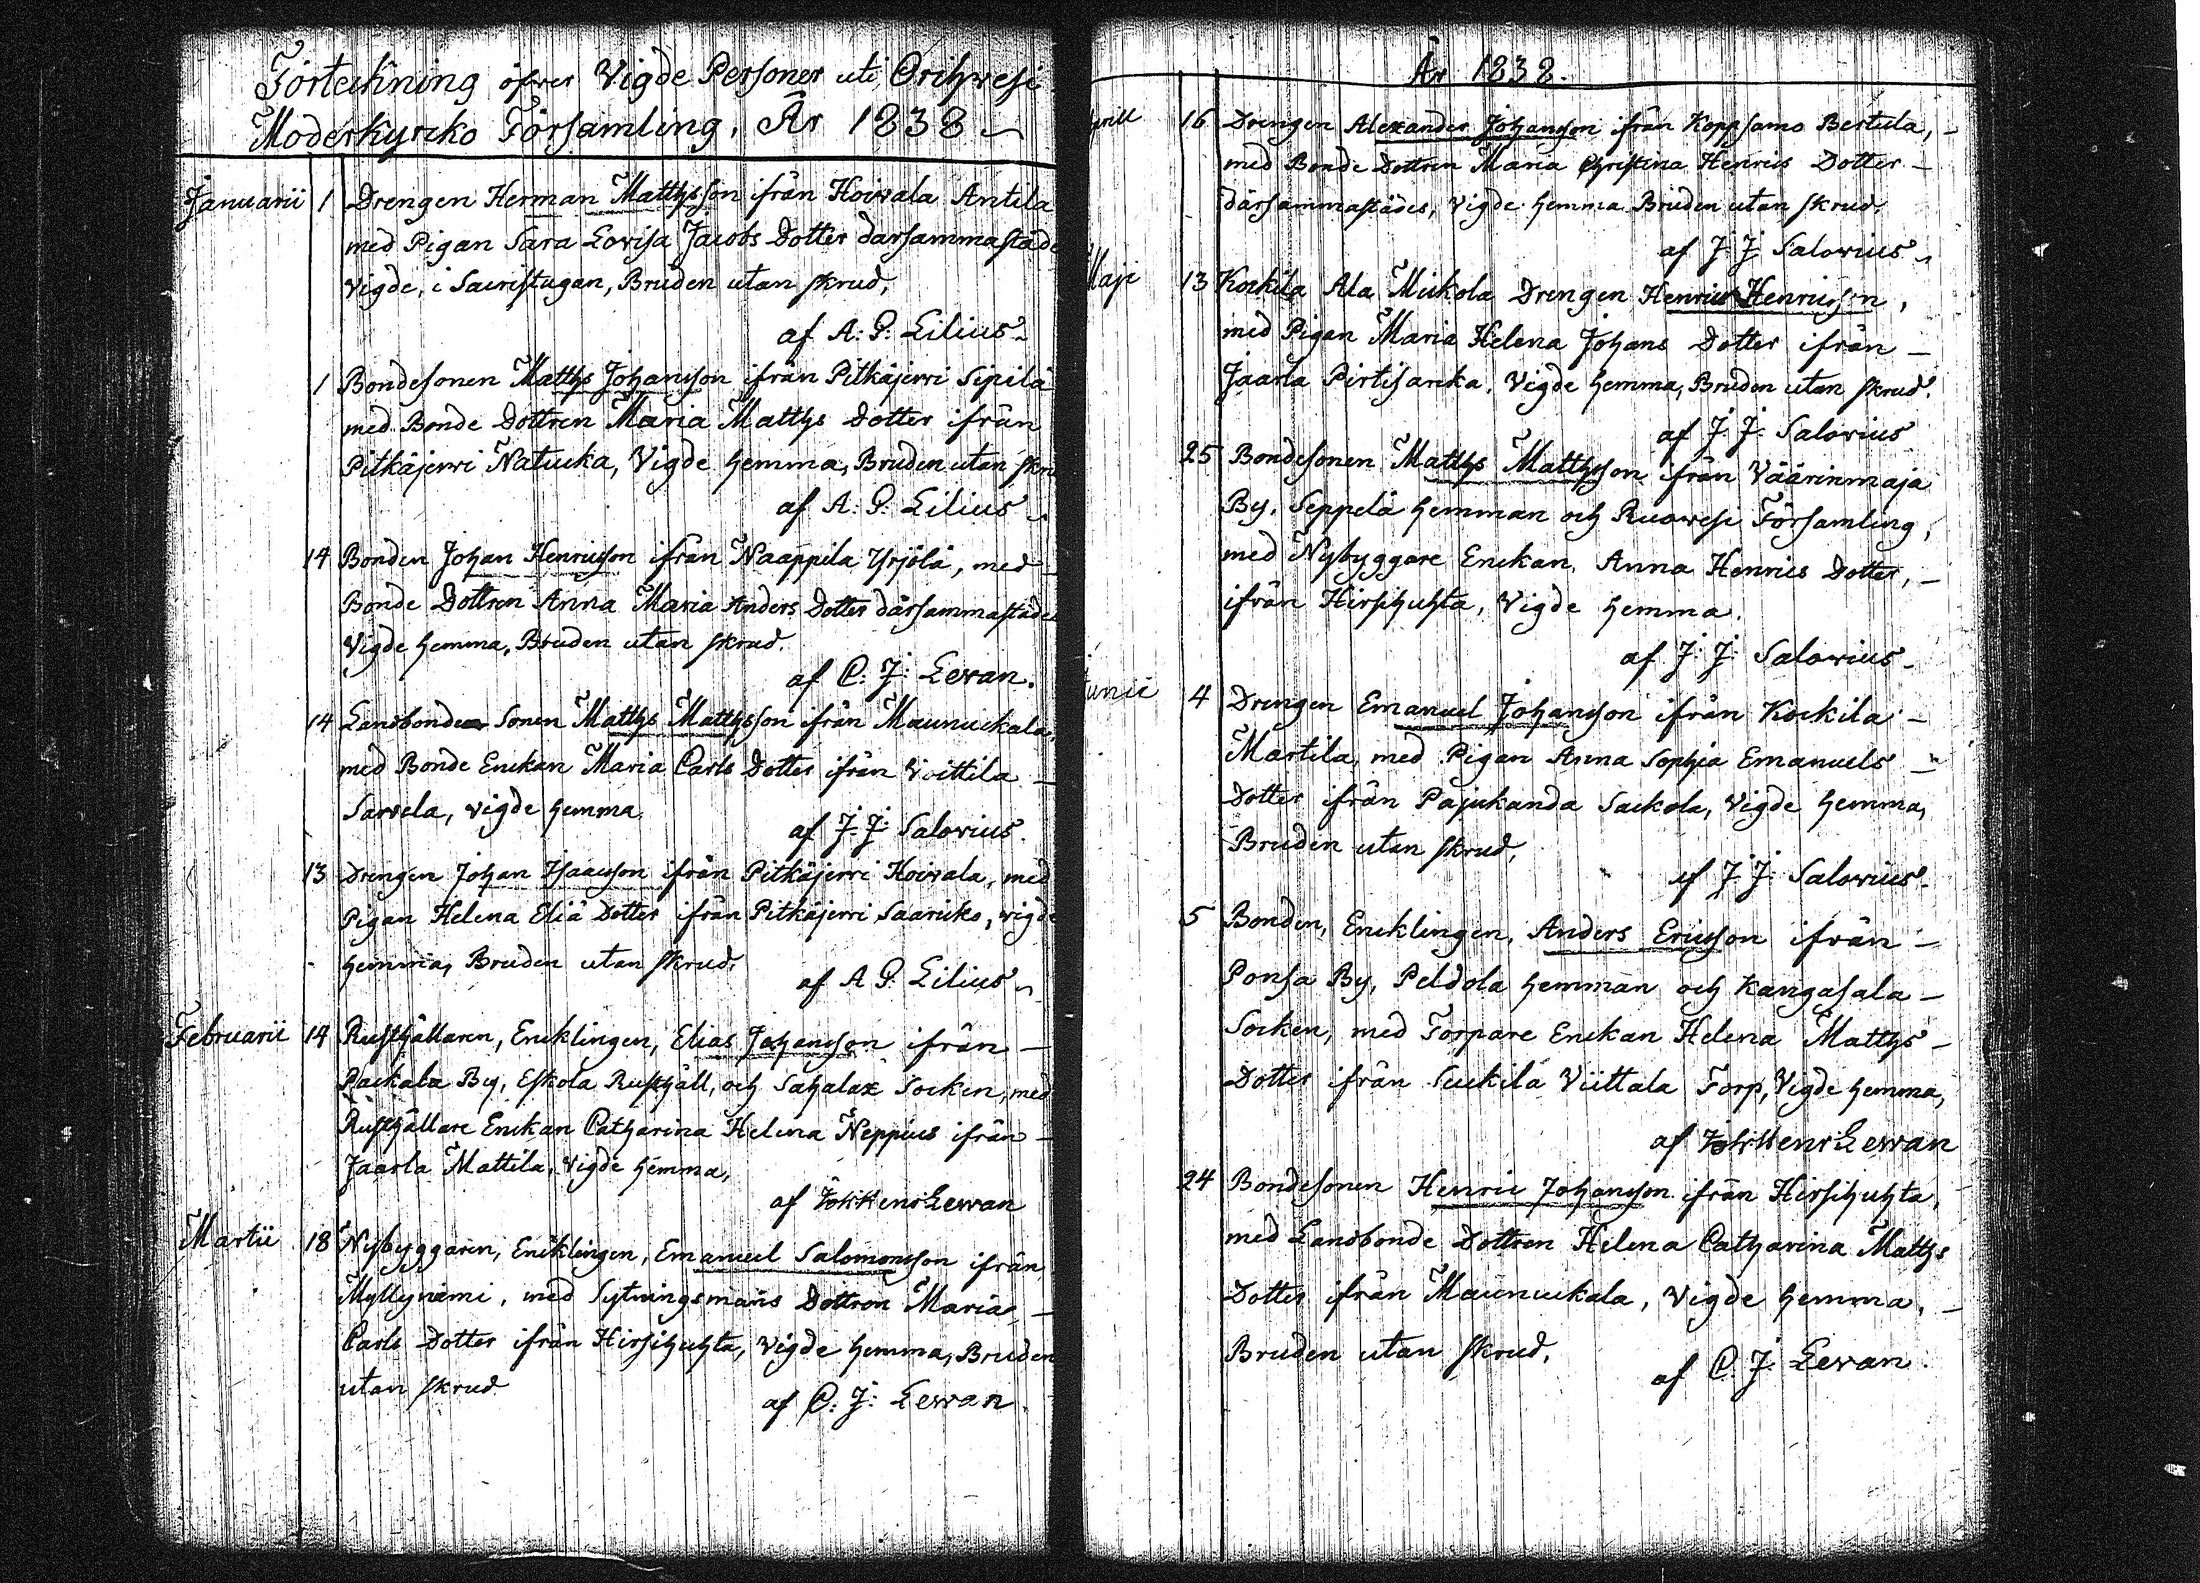 Förteckning öfver Vigde Personer uti Orihvesi
Moderkyrcko Församling, År 1838
Januarii 1 Drengen Herman Mattsson ifrån Hoivala Antila
med Pigan Sara Lovisa Jacobs Dotter därsammastäde
Vigde, i Sacristugan, Bruden utan skrud,
af A: G: Lilius
1 Bondesonen Matths Johansson ifrån Pitkäjervi Sipilä
med Bonde Dottren Maria Matths Dotter ifrån
Pitkäjervi Natucka, Vigde hemma, Bruden utan skru
af A: G: Lilius
14 Bonden Johan Henricsson ifrån Naappila Yrjölä, med
Bonde Dottren Anna Maria Anders Dotter därsammastäde
Vigde hemma, Bruden utan skrud.
af C: J: Levan.
14 Landbonde Sonen Matths Mathsson ifrån Maunuckala,
med Bonde Enckan Maria Carls Dotter ifrån Voittila
Sarvela, vigde hemma
af J: J: Salovius.
13 Drengen Johan Isaacsson ifrån Pitkäjervi Hoivala, med
Pigan Helena Eliæ Dotter ifrån Pitkäjervi Saariko, vigde
hemma, Bruden utan skrud.
af A G: Lilius
Februarii 14 Rusthållaren, Encklingen, Elias Johansson ifrån
Packala By, Eskola Rusthåll, och Sahalax Socken, med
Rusthållare Enckan Catharina Helena Neppius ifrån
Jaarla Mattila, Vigde hemma,
af Joh Henr Lewan
Martii 18 Nybyggaren, Encklingen, Emanuel Salomonsson ifrån
Myllyniemi, med Sytningsmans Dottren Maria
Carls Dotter ifrån Hirsihuhta, Vigde hemma, Bruden
utan skrud
af C: J: Lewan.
År 1838.
prill 16 Drengen Alexander Johansson ifrån Koppsamo Bertula,
med Bonde Dottren Maria Christina Henrics Dotter
därsammastädes, Vigde hemma Bruden utan skrud.
af J: J: Salovius
Maji 13 Kockila Ala Mickola Drengen Henric Henricsson,
med Pigan Maria Helena Johans Dotter ifrån
Jaarla Pirtisarcka, Vigde hemma, Bruden utan skrud.
af J: J: Salovius
25 Bondesonen Matths Matthsson ifrån Väärinmaja
By, Seppelä hemman och Ruovesi Församling,
med Nybyggare Enckan, Anna Henrics Dotter,
ifrån Hirsihuhta, Vigde hemma.
af J: J: Salovius
Junii 4 Drengen Emanuel Johansson ifrån Kockila
Martila, med Pigan Anna Sophia Emanuels
Dotter ifrån Pajukanda Sackola, Vigde hemma,
Bruden utan skrud,
af J: J: Salovius.
5 Bonden, Encklingen, Anders Ericsson ifrån
Ponsa By, Peldola hemman och Kangasala
Socken, med Torpare Enckan Helena Matths
Dotter ifrån Suckila Viittala Torp, Vigde hemma,
af Joh Henr Lewan
24 Bondesonen Henric Johansson ifrån Hirsihuhta,
med Landbonde Dottren Helena Catharina Matths
Dotter ifrån Maunuckala, Vigde hemma,
Bruden utan skrud,
af C: J: Levan.